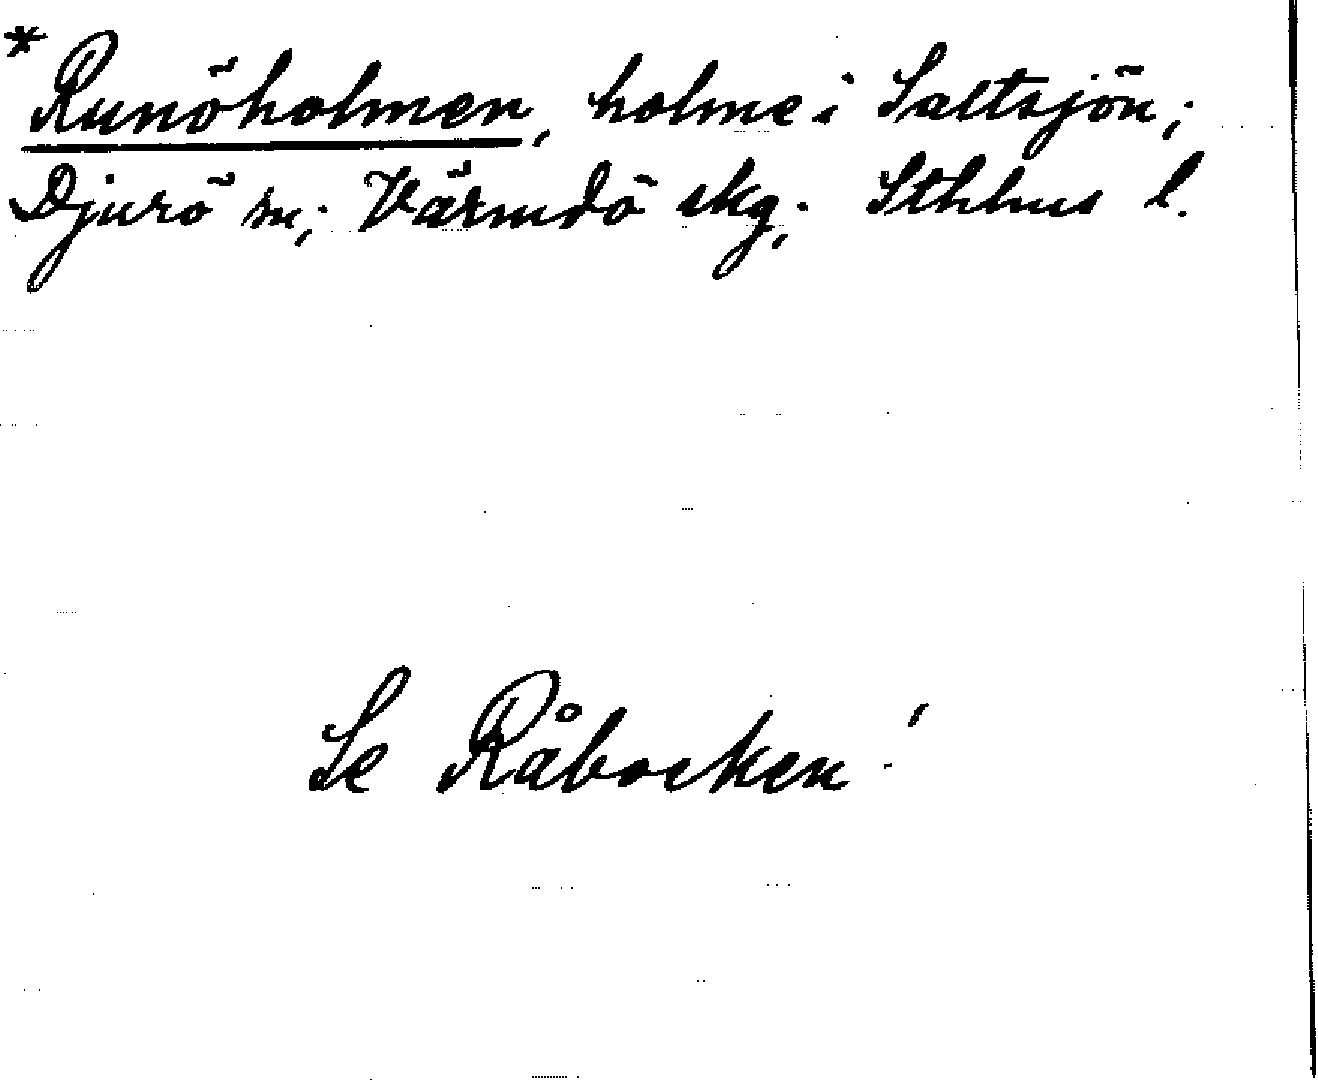 * Runöholmen, holme i Saltsjön;
Djurö sn; Värmdö skg; Sthlms l.
Se Råbocken!